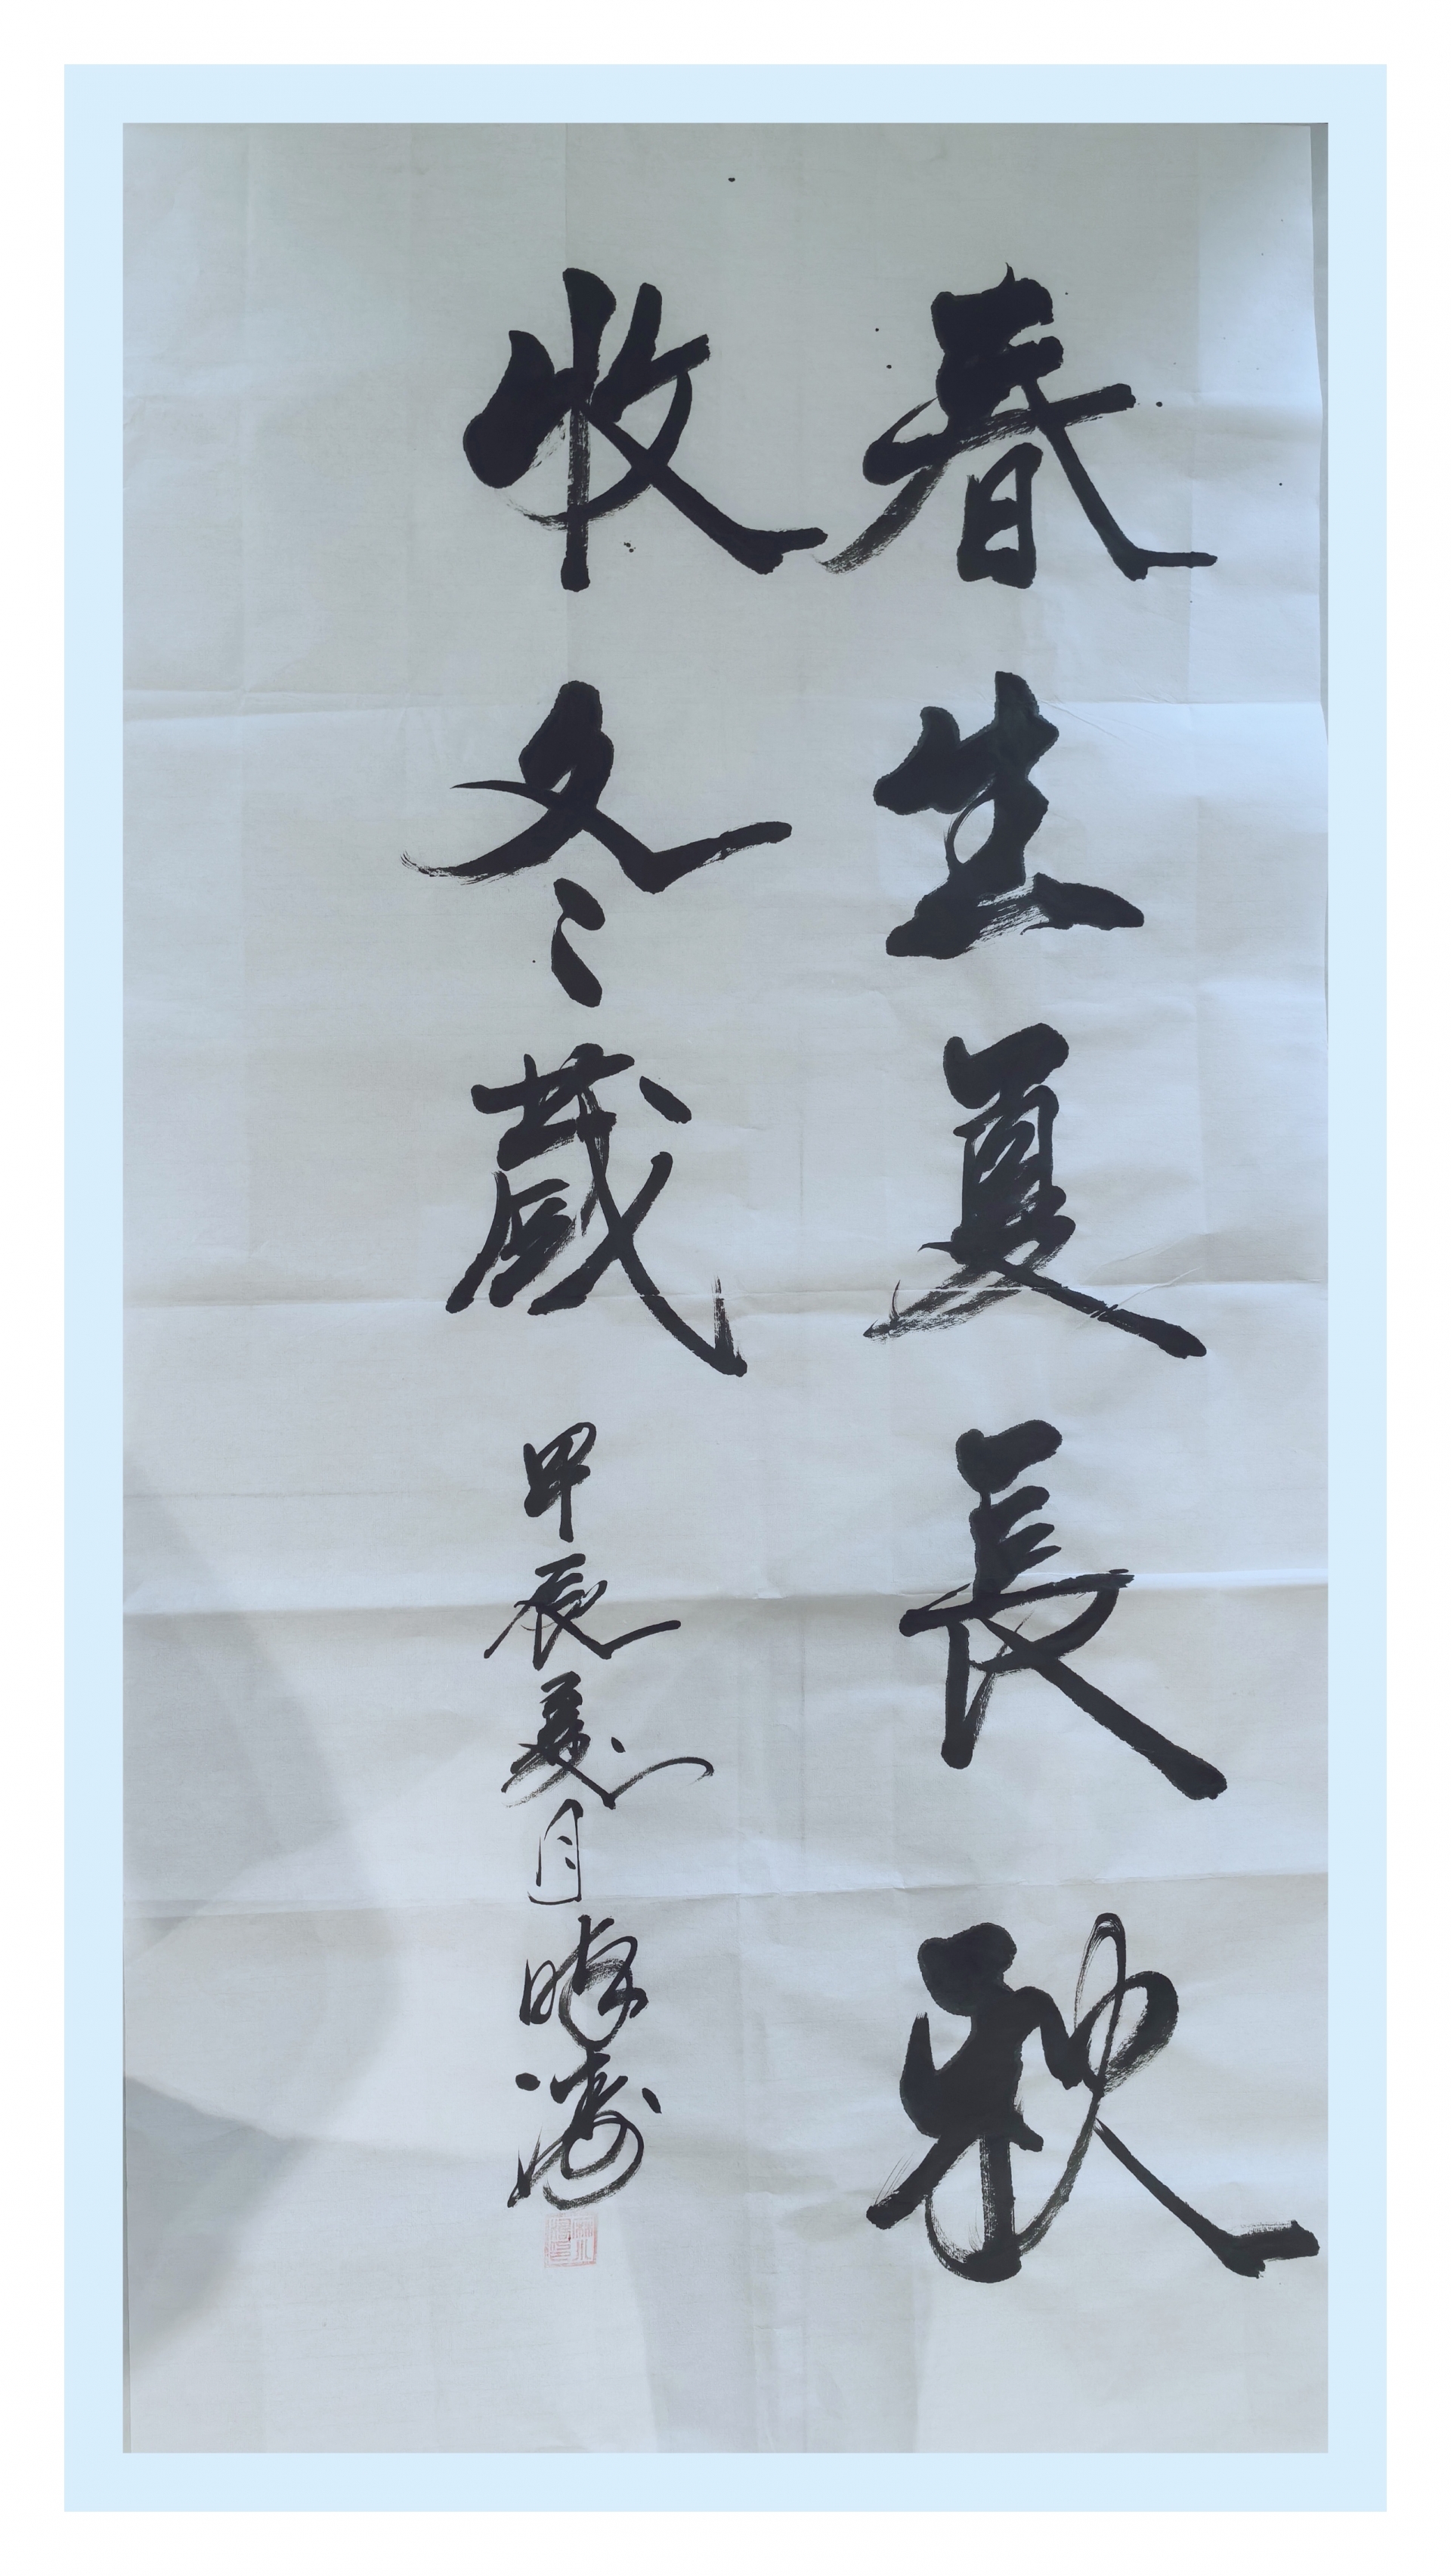 春生夏長秋
收冬藏 甲辰夏月